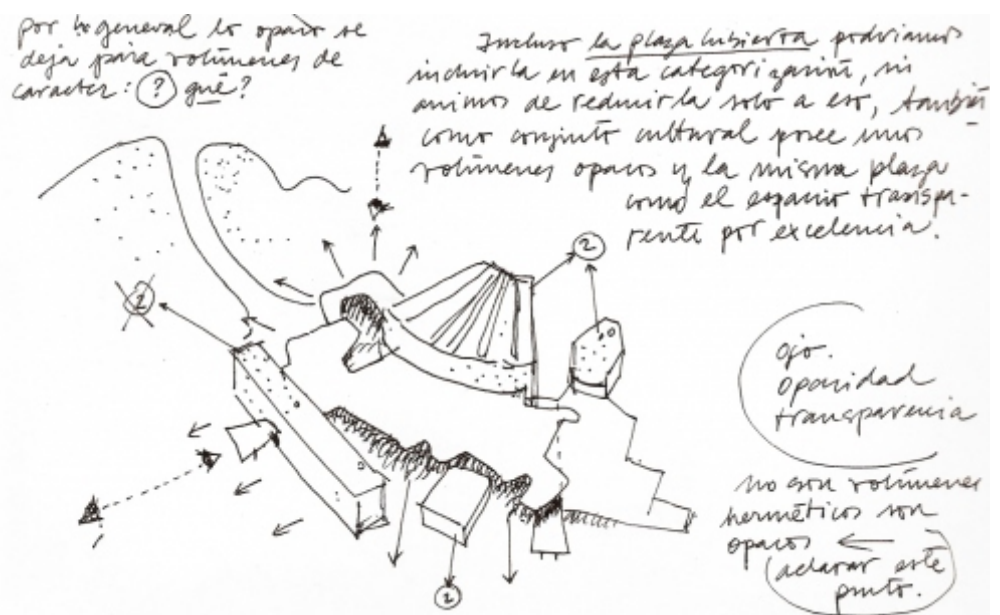 por lo general lo opaco se
deja para volúmenes de
caracter: ? qué?
Incluso la plaza cubierta podríamos
incluirla en esta categorización, sin
animos de reducirla solo a eso, también
como conjunto cultural posee unos
volúmenes opacos y la misma plaza
como el espacio transpa-
rente por excelencia.
2
2
2
ojo.
opacidad
transparencia
no son volúmenes
herméticos son
opacos ←
(aclarar este
punto.